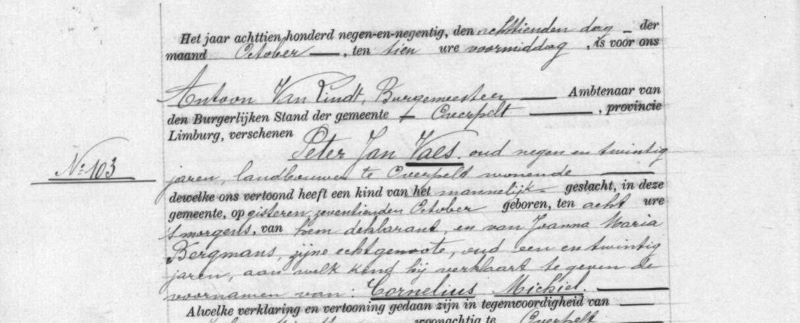 Het jaar achttien honderd negen-en-negentig, den achttienden dag der
maand October, ten tien ure voormiddag, is voor ons
Antoon Van Lindt, Burgemeester Ambtenaar van
den Burgerlijken Stand der gemeente Overpelt, provincie
Limburg, verschenen
Peter Jan Vaes, oud negen en twintig
No 103
jaren, landbouwer te Overpelt wonende
dewelke ons vertoond heeft een kind van het mannelijk geslacht, in deze
gemeente, op gisteren, zeventienden October geboren, ten acht ure
's morgens, van hem deklarant, en van Joanna Maria
Bergmans, zijne echtgenoote, oud een en twintig
jaren, aan welk kind hij verklaart te geven de
voornamen van: Cornelius Michiel.
Alwelke verklaring en vertooning gedaan zijn in tegenwoordigheid van
woonachtig te Overpelt